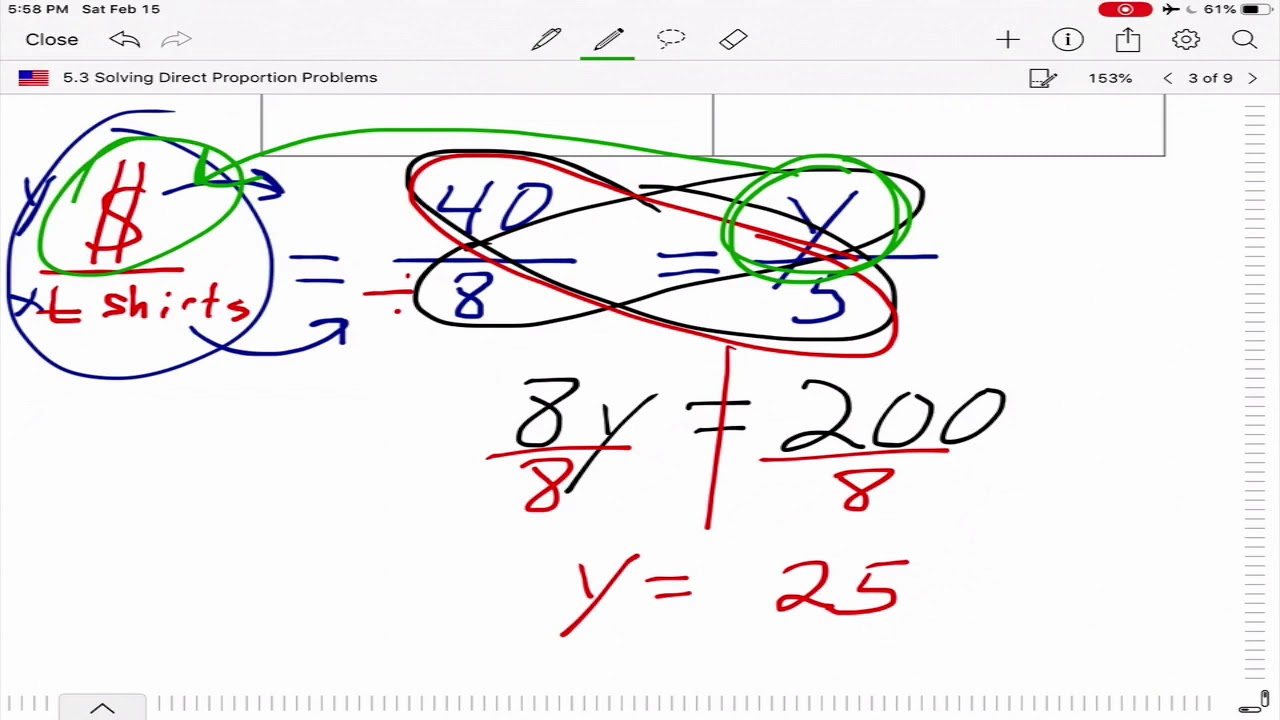 5:58 PM Sat Feb 15 61%
Close
5.3 Solving Direct Proportion Problems 153% 3 of 9
y $ 40 y
= ÷ =
x t shirts 8 5
8y = 200
8 8
y = 25